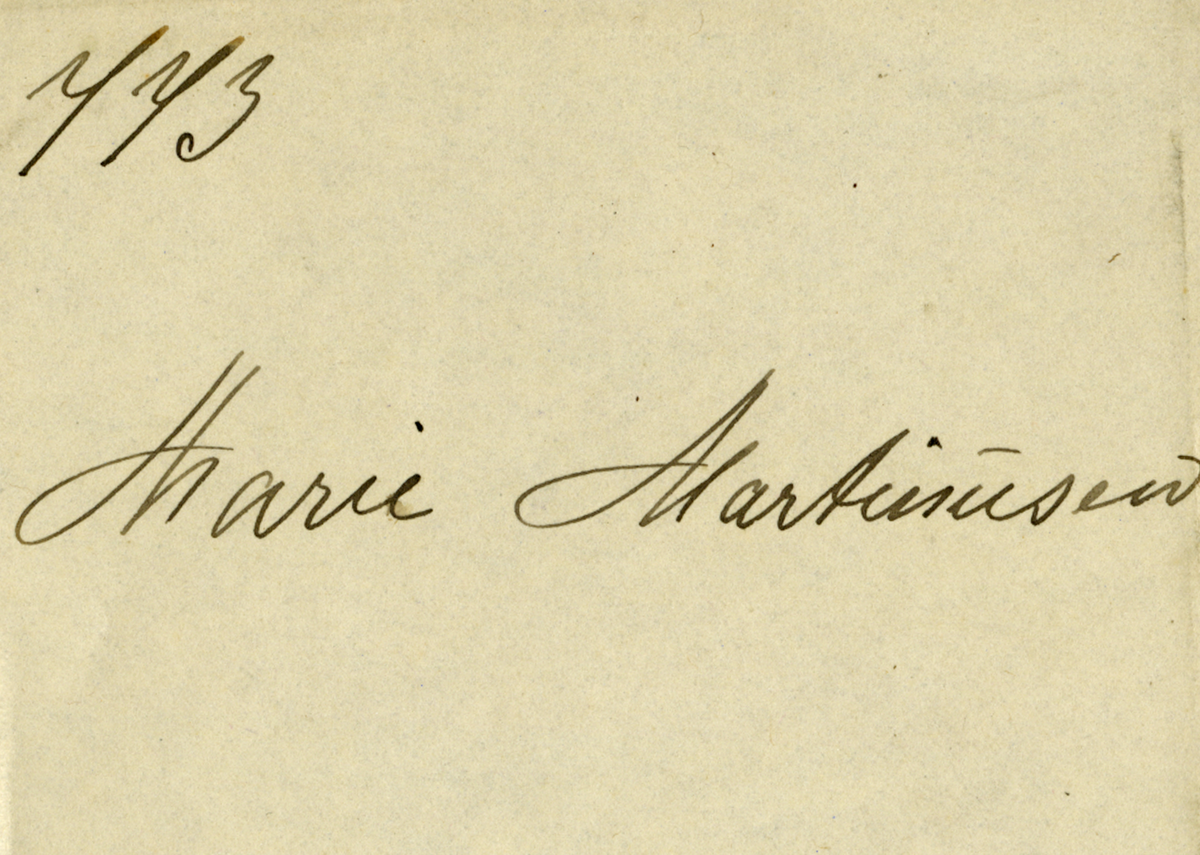 773
Marie Martinusen